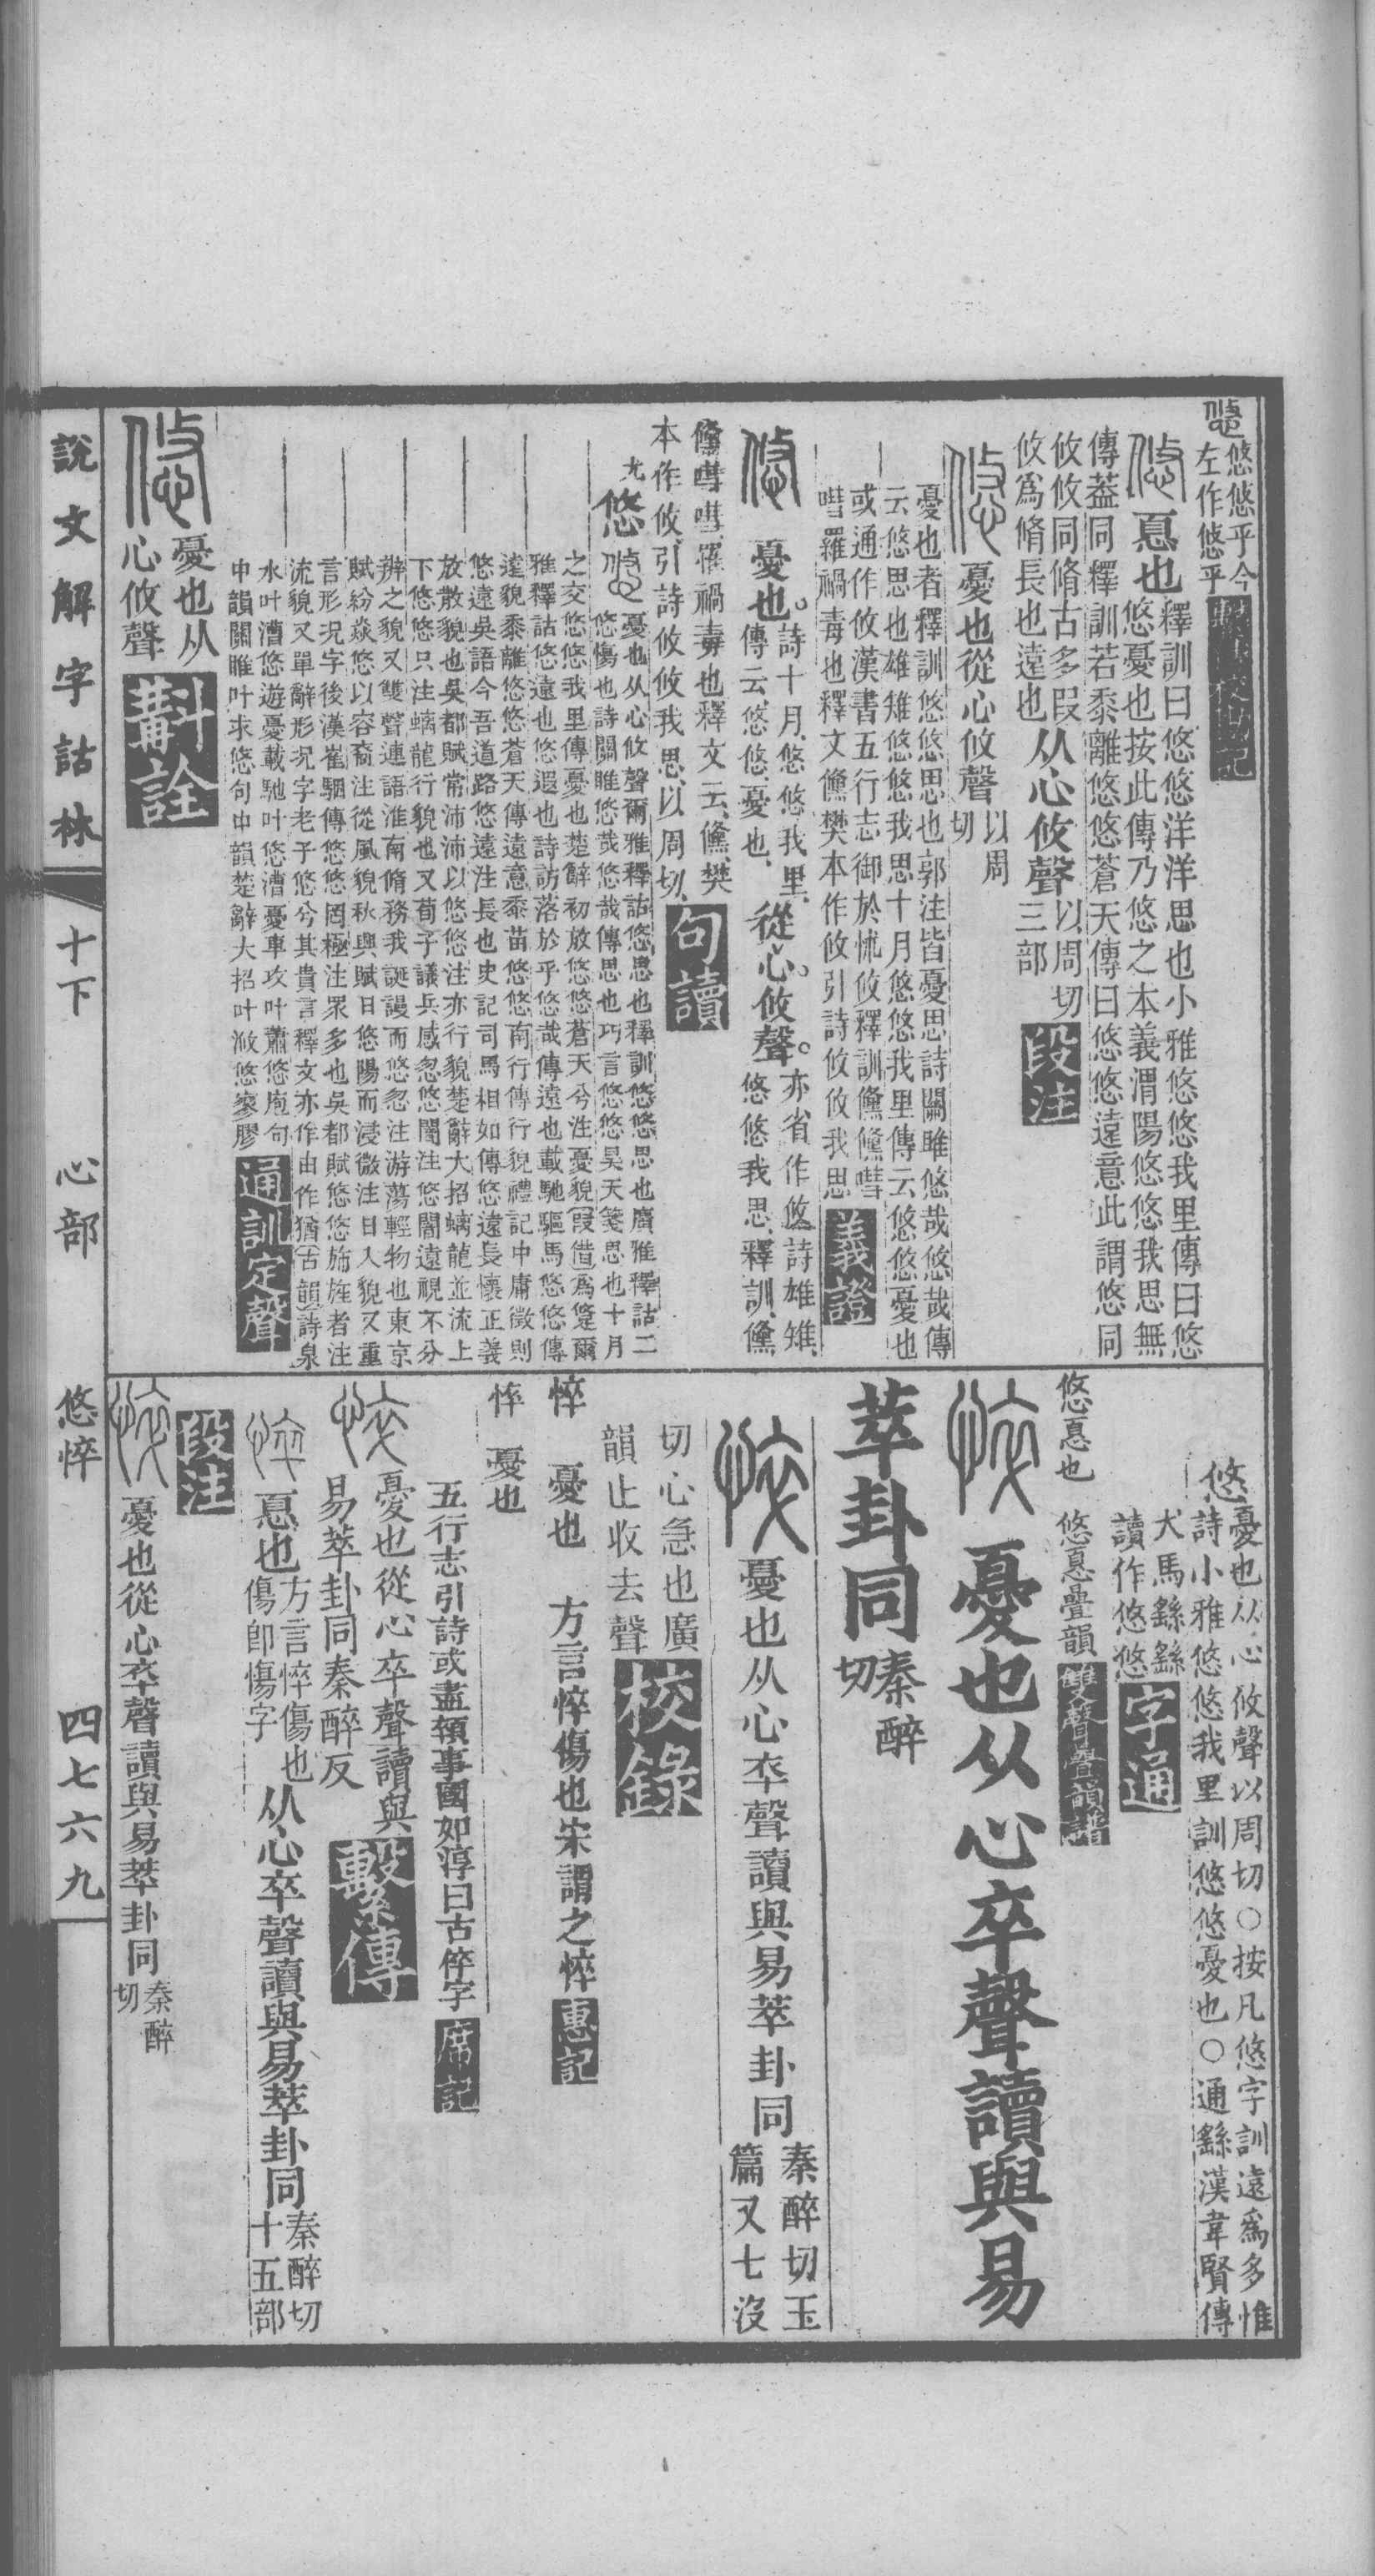 悠悠乎今
左作悠乎
校勘記
悠 㥑也
釋訓曰悠悠洋洋思也小雅悠悠我里傳曰悠
悠憂也按此傳乃悠之本義渭陽悠悠我思無
傳葢同釋訓若黍離悠悠蒼天傳曰悠悠遠意此謂悠同
攸攸同脩古多叚
攸爲脩長也遠也
从心攸聲
以周切
三部
段注
悠 憂也從心攸聲
以周
切
憂也者釋訓悠悠思也郭注皆憂思詩關雎悠哉悠哉傳
云悠思也雄雉悠悠我思十月悠悠我里傳云悠悠憂也
或通作攸漢書五行志御於怵攸釋訓儵儵嘒
嘒羅禍毒也釋文儵樊本作攸引詩攸攸我思
義證
悠 憂也。
詩十月、悠悠我里、
傳云、悠悠、憂也、
從心。攸聲。
亦省作攸、詩雄雉、
悠悠我思、釋訓、儵
儵嘒嘒、罹禍毒也、釋文云、儵、樊
本作攸、引詩攸攸我思、以周切、
句讀
尤
悠
憂也从心攸聲爾雅釋詁悠思也釋訓悠悠思也廣雅釋詁二
悠傷也詩關雎悠哉悠哉傳思也巧言悠悠昊天箋思也十月
之交悠悠我里傳憂也楚辭初放悠悠蒼天兮注憂貌叚借爲䠂爾
雅釋詁悠遠也悠遐也詩訪落於乎悠哉傳遠也載馳驅馬悠悠傳
遠貌黍離悠悠蒼天傳遠意黍苗悠悠南行傳行貌禮記中庸徵則
悠遠吳語今吾道路悠遠注長也史記司馬相如傳悠遠長懷正義
放散貌也吳都賦常沛沛以悠悠注亦行貌楚辭大招螭龍並流上
下悠悠只注螭龍行貌也又荀子議兵感忽悠闇注悠闇遠視不分
辨之貌又雙聲連語淮南脩務我誕謾而悠忽注游蕩輕物也東京
賦紛焱悠以容裔注從風貌秋興賦日悠陽而浸微注日入貌又重
言形況字後漢崔駰傳悠悠罔極注眾多也吳都賦悠悠旆旌者注
流貌又單辭形況字老子悠兮其貴言釋文亦作由作猶古韻詩泉
水叶漕悠遊憂載馳叶悠漕憂車攻叶蕭悠庖句
中韻關雎叶求悠句中韻楚辭大招叶浟悠寥膠
通訓定聲
悠
憂也从
心攸聲
斠詮
悠
憂也从心攸聲以周切〇按凡悠字訓遠爲多惟
詩小雅悠悠我里訓悠悠憂也〇通繇漢韋賢傳
犬馬繇繇
讀作悠悠
字通
悠㥑也
悠㥑疊韻
雙聲疊韻譜
悴 憂也从心卒聲讀與易
萃卦同
秦醉
切
悴 憂也从心卒聲讀與易萃卦同
秦醉切玉
篇又七沒
切心急也廣
韻止收去聲
校錄
悴 憂也 方言悴傷也宋謂之悴
惠記
悴 憂也
五行志引詩或盡領事國如淳曰古倅字
席記
悴
憂也從心卒聲讀與
易萃卦同秦醉反
繫傳
悴 㥑也
方言悴傷也
傷卽慯字
从心卒聲讀與易萃卦同
秦醉切
十五部
段注
悴 憂也從心卒聲讀與易萃卦同
秦醉
切
說文解字詁林 十下 心部 悠悴 四七六九